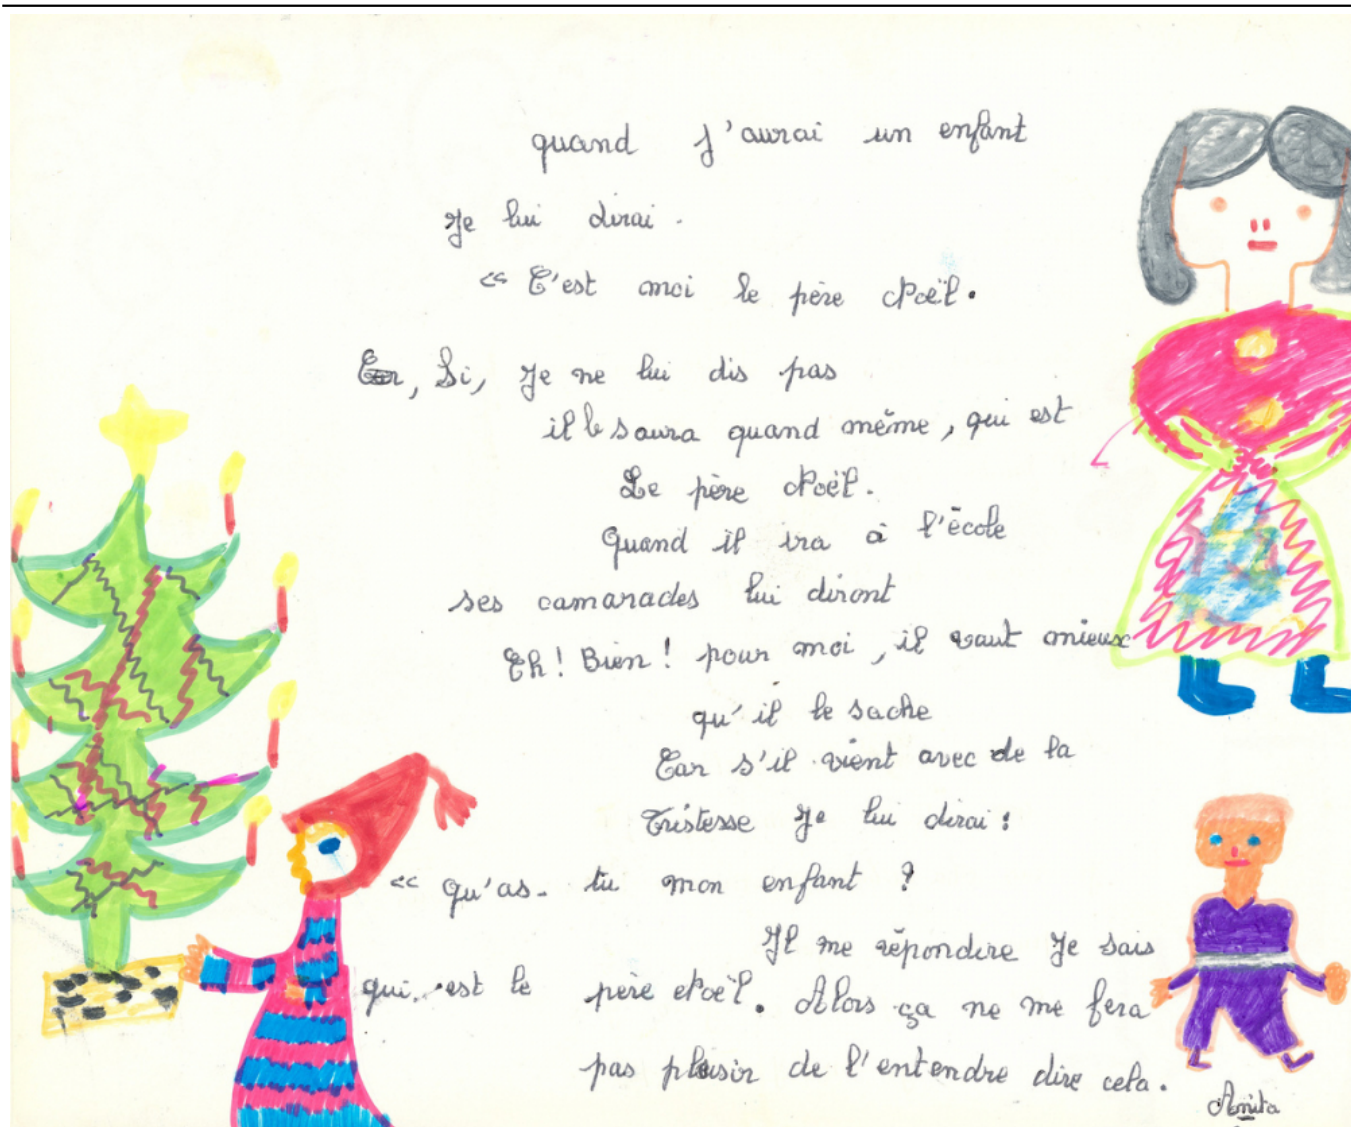 quand j'aurai un enfant
Je lui dirai.
« C'est moi le père Noël.
Car, Si, Je ne lui dis pas
il le saura quand même, qui est
Le père Noël.
Quand il ira à l'école
ses camarades lui diront
Eh ! Bien ! pour moi, il vaut mieux
qu'il le sache
Car s'il vient avec de la
Tristesse Je lui dirai :
« qu'as-tu mon enfant ?
Il me répondire Je sais
qui est le père Noël. Alors ça ne me fera
pas plaisir de l'entendre dire cela.
Anita